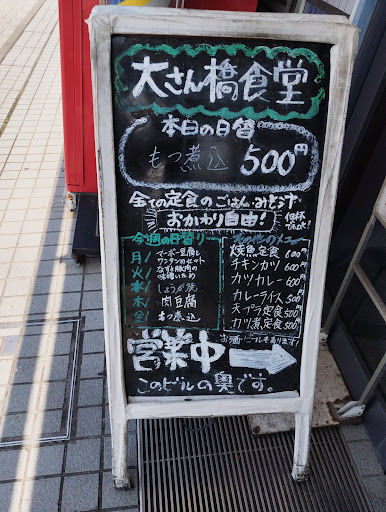 大さん橋食堂
本日の日替
もつ煮込 500円
全ての定食のごはん・みそ汁
おかわり自由! 何杯でもOK!
今週の日替り
月/マーボー豆腐と
ワンタンのセット
火/なすと豚肉の
味噌いため
水/しょうが焼
木/肉豆腐
金/もつ煮込
メニュー
焼魚定食 600円
チキンカツ 600円
カツカレー 600円
カレーライス 500円
天プラ定食 500円
カツ煮定食 500円
お酒・ビールもあります!
営業中→
このビルの奥です。